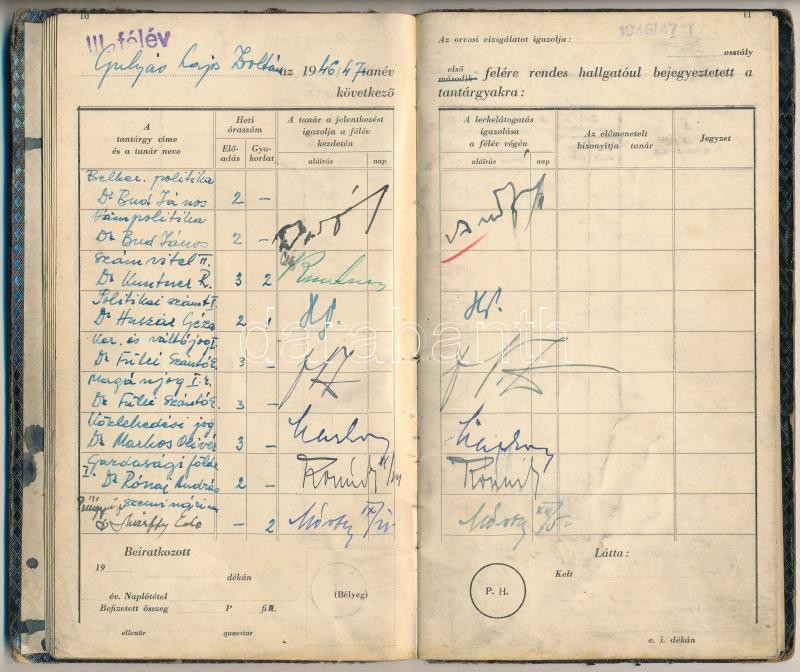 10
III. félév
Gulyás Lajos Zoltán az 1946/47 tanév
következő
A tantárgy címe és a tanár neve
Heti óraszám
Elő-adás
Gya-korlat
A tanár a jelentkezést igazolja a félév kezdetén
aláírás nap
Belker. politika
Dr Bud János 2 –
Vámpolitika
Dr Bud János 2 –
Számvitel II.
Dr Kuntner R. 3 2
Politikai számt I.
Dr Huszár Géza 2 1
Ker. és váltójog I.
Dr Fülei Szántó E. 3 –
Magánjog I. r.
Dr Fülei Szántó E. 3 –
Közlekedési jog
Dr Markos Olivér 3 –
Gazdasági földr.
I. Dr Rónai András 2 –
Pügyi szeminárium
Dr Márffy Ede – 2
Beiratkozott
19
dékán
év. Naplótétel
Befizetett összeg P fill.
(Bélyeg)
ellenőr quaestor
11
1946/47-I
Az orvosi vizsgálatot igazolja:
osztály
első
második felére rendes hallgatóul bejegyeztetett a
tantárgyakra:
A leckelátogatás igazolása a félév végén
aláírás nap
Az előmenetelt bizonyítja tanár
Jegyzet
Látta:
Kelt
P. H.
e. i. dékán
darabanth